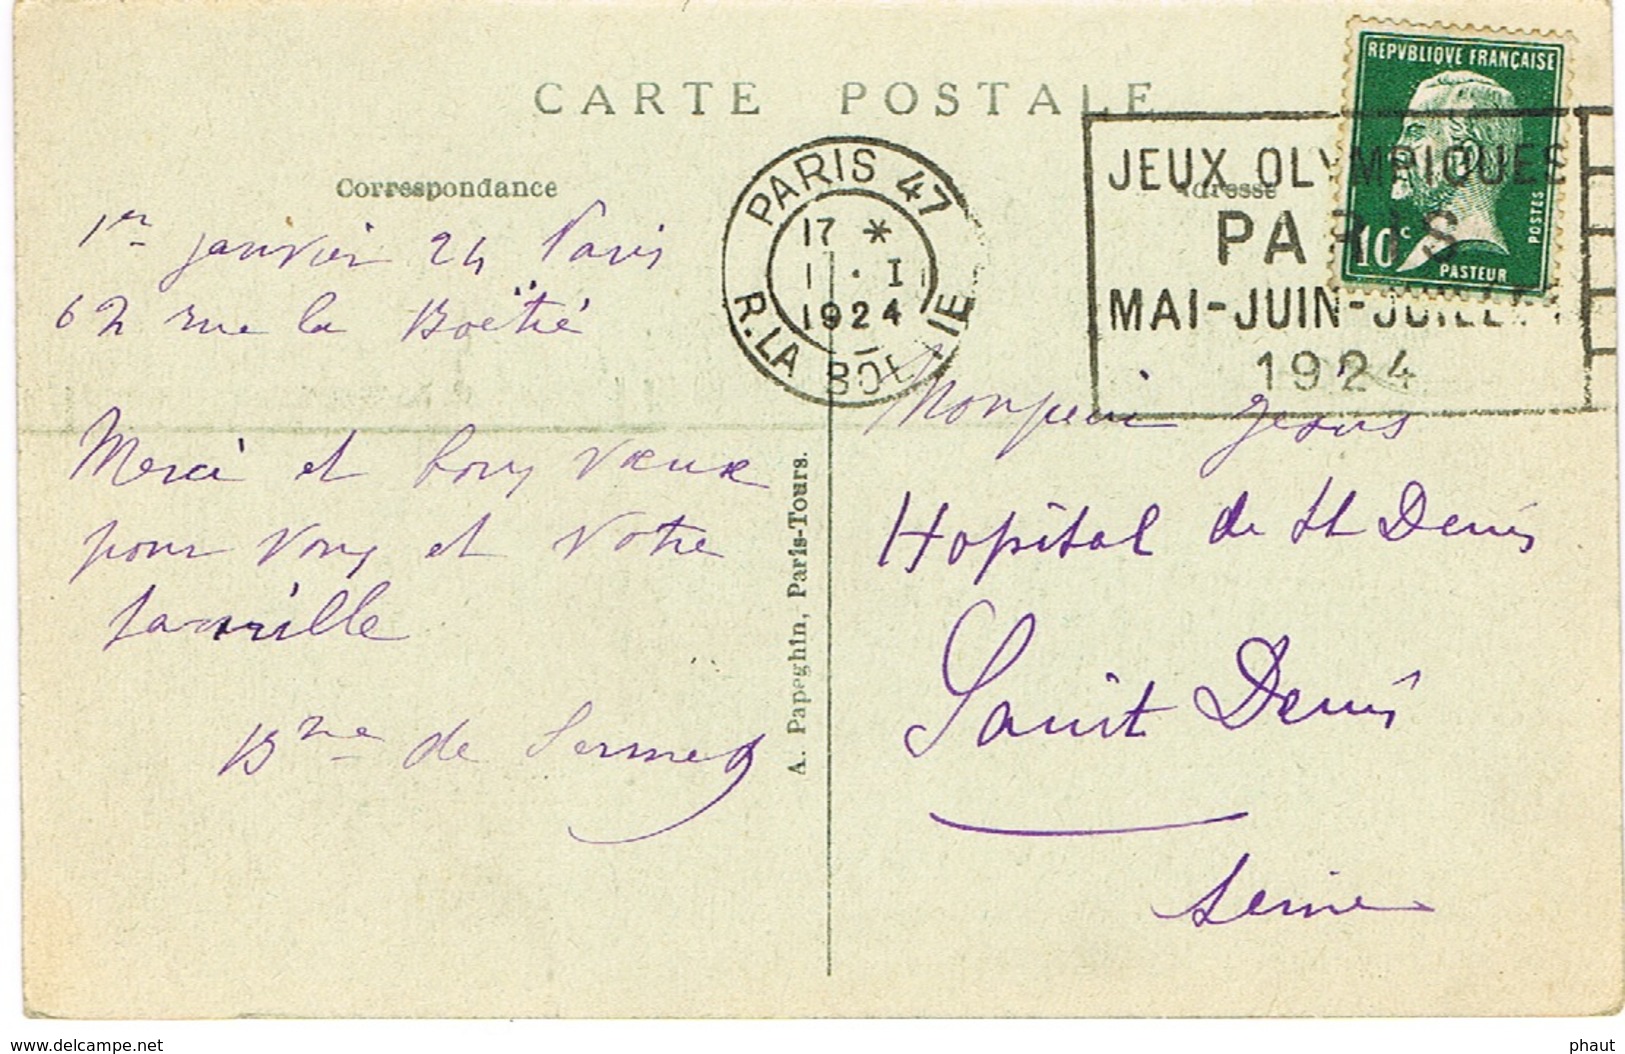 CARTE POSTALE
Correspondance
Adresse
1er janvier 24 Paris
62 rue la Boëtie
Merci et bons vœux
pour vous et votre
famille
Bne de
A. Papeghin, Paris-Tours.
PARIS 47
17 *
1 · I
1924
R. LA BOETIE
JEUX OLYMPIQUES
PARIS
MAI-JUIN-JUILLET
1924
REPVBLIQVE FRANÇAISE
POSTES
10c
PASTEUR
Jesus
Hopital de St Denis
Saint Denis
Seine
www.delcampe.net
phaut